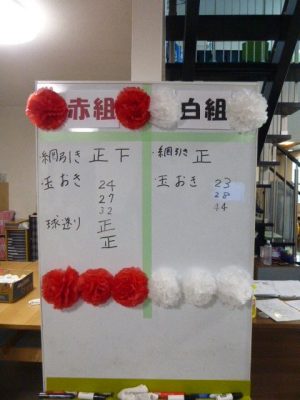 赤組
・綱引き 正 下
・玉おき 24
27
32
球送り 正
正
白組
・綱引き 正
玉おき 23
28
44